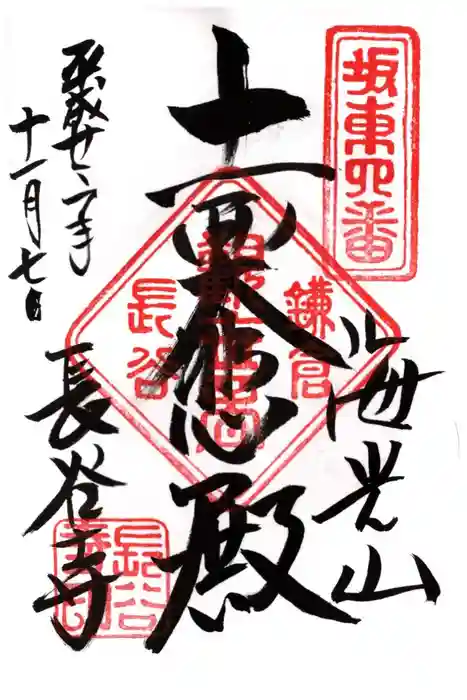 坂東四番
海光山
十一面大悲殿
鎌倉
長谷
平成廿二年
十一月七日
長谷寺
長谷
寺印